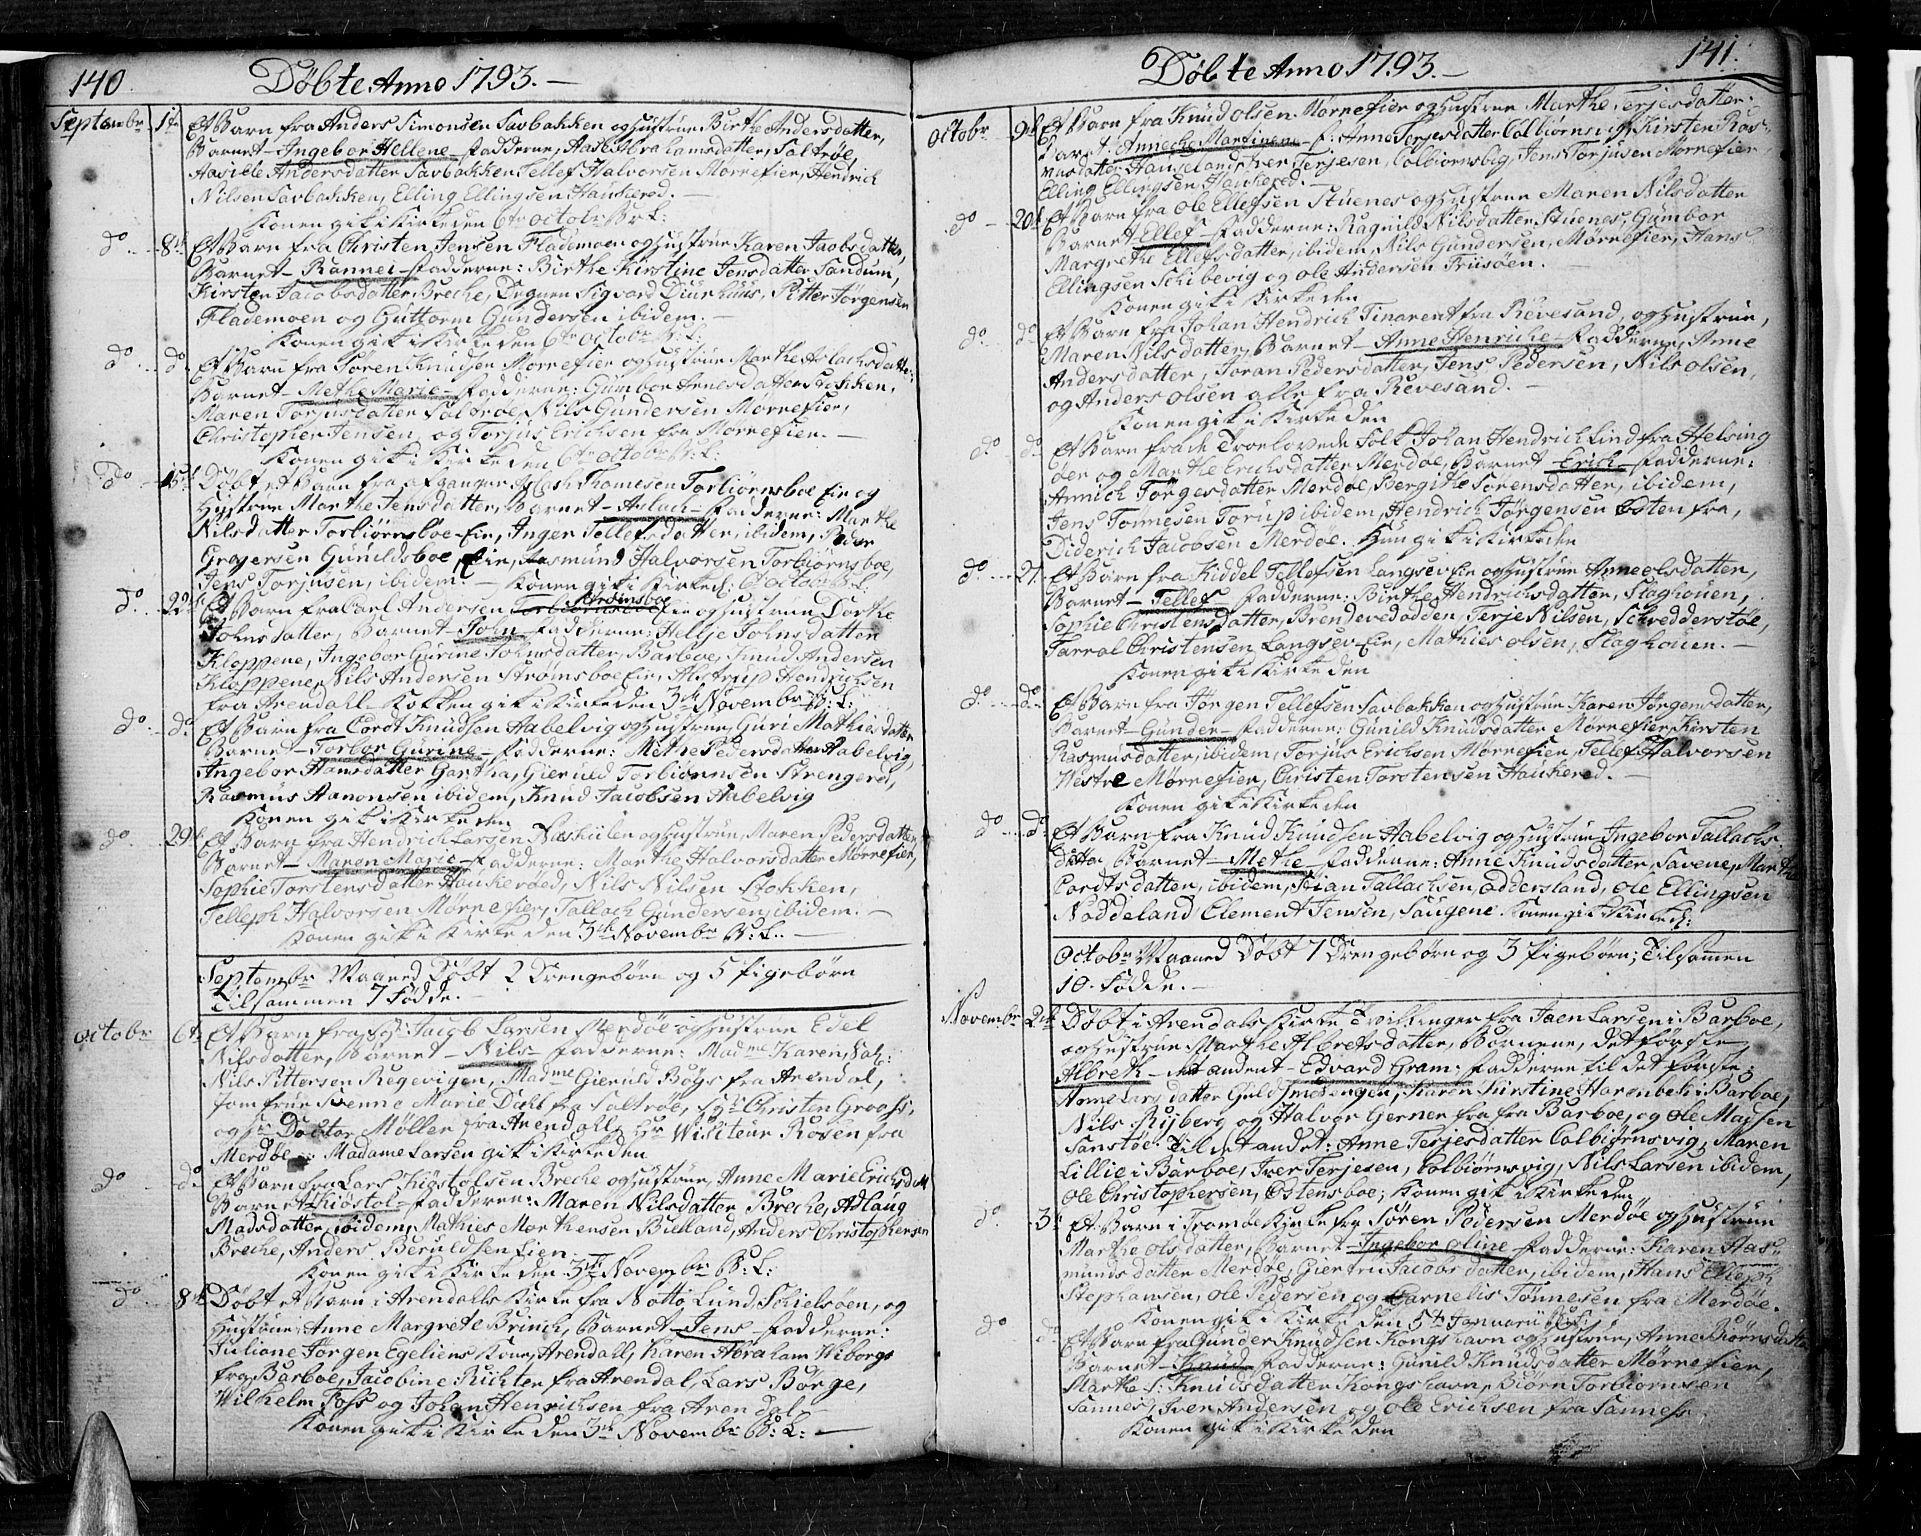 140.
Døbte Anno 1793.
Septembr 1te Et Barn fra Anders Simonsen Savbakken og Hustrue Birthe Andersdatter,
Barnet - Ingebor Hellene - Fadderne, Aase Abrahamsdatter, Saltrøe,
Andersdatter Savbakken Tellef Halvorsen Mørnefier, Hendrich
Nilsen Savbakken, Elling Ellingsen Haukerød.
Konen gik i Kirke den 6te octobr
do 8de Et Barn fra Christen Jensen Flademoen og Hustrue Karen Jacobsdatter,
Barnet - Rannei - Fadderne: Birthe Kirstine Jensdatter Sandum,
Kirsten Jacobsdatter Breche, Degnen Sigvard Diurhuus, Pitter Jørgensen
Flademoen og Guttorm Gundersen ibidem.
Konen gik i Kirke den 6te octobr
do do Et Barn fra Søren Knudsen Mørnefier og Hustrue Marthe Aslachsdatter,
Barnet - Methe Marie - Fadderne: Gumbor Arnesdatter Stokken,
Maren Torjusdatter Saltrøe, Nils Gundersen Mørnefier,
Christopher Jensen, og Torjus Erichsen fra Mørnefier.
Konen gik i Kirke den 6te octobr
do 15de Døbt et Barn fra afgangne Aslach Thomesen Torbiørnsboe Eie og
Hustrue Marthe Jensdatter, Barnet - Aslach - Fadderne: Marthe
Nilsdatter Torbiørnsboe Eie, Inger Tellefsdatter, ibidem, Peder
Gregersen Gunildsboe Eie, Aasmund Halvorsen Torbiørnsboe,
Jens Torjusen, ibidem. Konen gik i Kirke d: 6 octobr
do 22de Et Barn fra Carl Andersen Strømsboe Eie og Hustrue Dorthe
Johnsdatter, Barnet - John - Fadderne: Hellje Johnsdatter
Kloppene, Ingebor Gurine Johnsdatter, Barboe, Knud Andersen
Kloppene, Nils Andersen Strømsboe Eie, Hendrichsen
fra Arendahl. Konen gik i Kirke den 3de Novembr
do do Et Barn fra Cordt Knudsen Aabelvig og Hustrue Guri Mathiesdatter
Barnet - Torbor Gurine - Fadderne: Methe Pedersdatter Aabelvig,
Ingebor Hansdatter Gartha, Gieruld Torbiørnsen Strengereed,
Rasmus Aanonsen ibidem, Knud Jacobsen Aabelvig
Konen gik i Kirke den
do 29de Et Barn fra Hendrich Larsen Neskilen og Hustrue, Maren Pedersdatter
Barnet - Maren Marie - Fadderne: Marthe Halvorsdatter Mørnefier,
Sophie Torstensdatter Haukerøed, Nils Nilsen Stokken,
Telleph Halvorsen Mørnefier, Tallach Gundersen, ibidem.
Konen gik i Kirke den 3de Novembr
Septembr Maaned Døbt 2 Drengebørn og 5 Pigebørn
Tilsammen 7 Fødde.
Octobr 6te Et Barn fra Jacob Larsen Merdøe og Hustrue Edel
Nilsdatter, Barnet - Nils - Fadderne: Madme Karen,
Nils Pittersen Regevigen, Madme Gieruld Bøgs fra Arendal,
Jomfrue Marie Dahl fra Saltrøe, Christen Grooss,
og Doctor Møller fra Arendahl, Hr Visiteur Rosen fra
Merdøe. Madame Larsen gik i Kirke den
do do Et Barn fra Lars Kiøstolsen Breche og Hustrue, Anne Marie Erichsdatt
Barnet - Kiøstol - Fadderne: Maren Nilsdatter Breche, Adlaug
Madsdatter, ibidem, Mathies Morthensen Bielland, Anders Christophersen
Breche, Anders Beruldsen Eien.
Konen gik i Kirke den 3de Novembr
do 8de Døbt et Barn i Arendahls Kirke fra Notto Lund, Schielsøen, og
Hustrue Anne Margrete Brinch, Barnet - Jens - Fadderne:
Juliane Jørgen Egeliens Kone, Arendahl, Karen Abraham Wiborgs
fra Barboe, Jacobine Richter fra Arendal, Lars Børge,
Wilhelm Foss og Johan Henrichsen fra Arendal.
Konen gik i Kirke den 3de Novembr
141.
Døbte Anno 1793.
Octobr 9de Et Barn fra Knud Olsen Mørnefier og Hustrue Marthe Terjesdatter:
Barnet Annecke Martinene - F: Anne Terjesdatter Colbiørnsvig, Kirsten Ras-
musdatter Hauseland, Iver Terjesen, Colbiørnsvig, Jens Torjusen Mørnefier
Elling Ellingsen Haukerød.
do 20de Et Barn fra Ole Ellefsen Stuenes og Hustrue Maren Nilsdatter
Barnet - Ellef - Fadderne: Ragnild Nilsdatter Stuenes, Gumbor
Margrethe Ellefsdatter, ibidem, Nils Gundersen, Mørnefier, Hans
Ellingsen Schibevig og Ole Andersen Friisøen.
Konen gik i Kirke den
do do Et Barn fra Johan Hendrich Tinarent fra Revesand, og Hustrue,
Maren Nilsdatter, Barnet - Anne Henriche - Fadderne, Anne
Andersdatter, Joran Pedersdatter, Jens Pedersen, Nils Olsen,
og Anders Olsen alle fra Revesand.
Konen gik i Kirke den
do do Et Barn fra de Trolovede Folk Johan Hendrich Lind fra Helsing
øer og Marthe Erichsdatter Merdøe, Barnet - Erich - Fadderne:
Annich Jørgesdatter Merdøe, Bergithe Sørensdatter, ibidem,
Jens Tønnesen Torup ibidem, Hendrich Jørgensen Østen fra,
Diderich Jacobsen Merdøe. Hun gik i Kirke den
do 27 Et Barn fra Kiddel Tellefsen Langsev Eie og Hustrue Anne Olsdatter,
Barnet - Tellef - Fadderne: Birthe Hendrichsdatter, Flaghouen,
Sophie Christensdatter, Brendevedodden, Terje Nilsen, Schredderstøe,
Tarral Christensen, Langsev Eie, Mathies Olsen, Flaghouen.
Konen gik i Kirke den
do do Et Barn fra Jørgen Tellefsen Savbakken og Hustrue Karen Jørgensdatter,
Barnet - Gunder - Fadderne: Gunild Knudsdatter Mørnefier, Kirsten
Rasmusdatter, ibidem, Torjus Erichsen Mørnefier, Tellef Halvorsen
Westre Mørnefier, Christen Torstensen Haukered.
Konen gik i Kirke den
do do Et Barn fra Knud Knudsen Aabelvig og Hustrue, Ingebor Tallachs
datter Barnet - Methe - Fadderne: Anne Knudsdatter, Savene, Marthe
Cordtsdatter, ibidem, Stian Tallachsen, Addersland, Ole Ellingsen
Noddeland, Clement Jensen, Saugene. Konen gik i Kirke d:
Octobr Maaned Døbt 7 Drengebørn og 3 Pigebørn; Tilsamen
10. Fødde.
Novembr 2de Døbt i Arendals Kirke Tvillinger fra Jaen Larsen i Barboe,
og Hustrue Marthe Albretsdatter, Børnene, det første,
Albreth - det andet - Edvard Gram: Fadderne til det første:
Anne Larsdatter Guldsmedengen, Karen Kirstine Harenbek i Barboe,
Nils Ryberg og Halvor Gerner fra Barboe, og Ole Madsen
Sanstøe. Til det andet: Anne Terjesdatter Colbiørnsvig, Maren
Lillie i Barboe, Iver Terjesen, Colbiørnsvig, Nils Larsen ibidem,
Ole Christophersen, Østensboe; Konen gik i Kirke den
do 3de Et Barn i Tromøe Kirke fra Søren Pedersen Merdøe og Hustrue
Marthe Olsdatter, Barnet - Ingebor Oline - Fadderne: Karen Aas-
mundsdatter Merdøe, Giertru Jacobsdatter, ibidem, Hans Elieph
Stephansen, Ole Pedersen og Cornelis Tønnesen fra Merdøe.
Konen gik i Kirke den 5te Januarii
do do Et Barn fra Gunder Knudsen Kongshavn og Hustrue, Anne Biørnsdatter
Barnet - Knud - Fadderne: Gunild Knudsdatter Mørnefier,
Marthe S: Knudsdatter Kongshavn, Biørn Torbiørnsen
Sannes, Iver Andersen og Ole Erichsen fra Sanness.
Konen gik i Kirke den